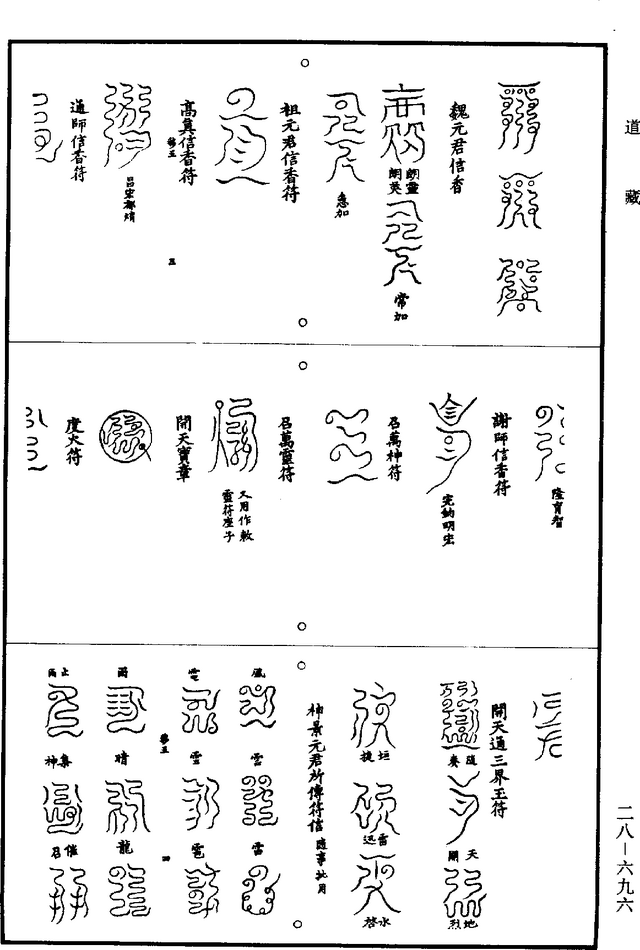 道藏
魏元君信香
朗靈
朗英
常加
急加
祖元君信香符
高真信香符
三
通師信香符
隆育智
謝師信香符
完納明宏
召萬神符
召萬靈符
又用作敕
靈符座子
開天寶章
度火符
開天通三界玉符
隨奏
天開
地烈
垣捷
雷迅
水啓
神景元君所傳符信
隨事批用
風
雲
雷
電
雪
雹
四
雨
晴
龍
止雨
集神
催召
二八—六九六